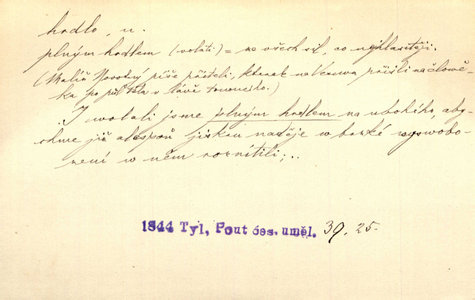 hrdlo, n.
plným hrdlem (volati) = ze všech sil, co nejhlasitěji.
(Malíř Novotný píše příteli, kterak na Vesuvu přišli na člově-
ka po půl těla v lávě tonoucího.)
I wolali jsme plným hrdlem na ubohého, aby-
chme již alespoň jiskru naděje w brzké wyswobo-
zení w něm roznítili;..
1844 Tyl, Pout čes. uměl. 39. 25.